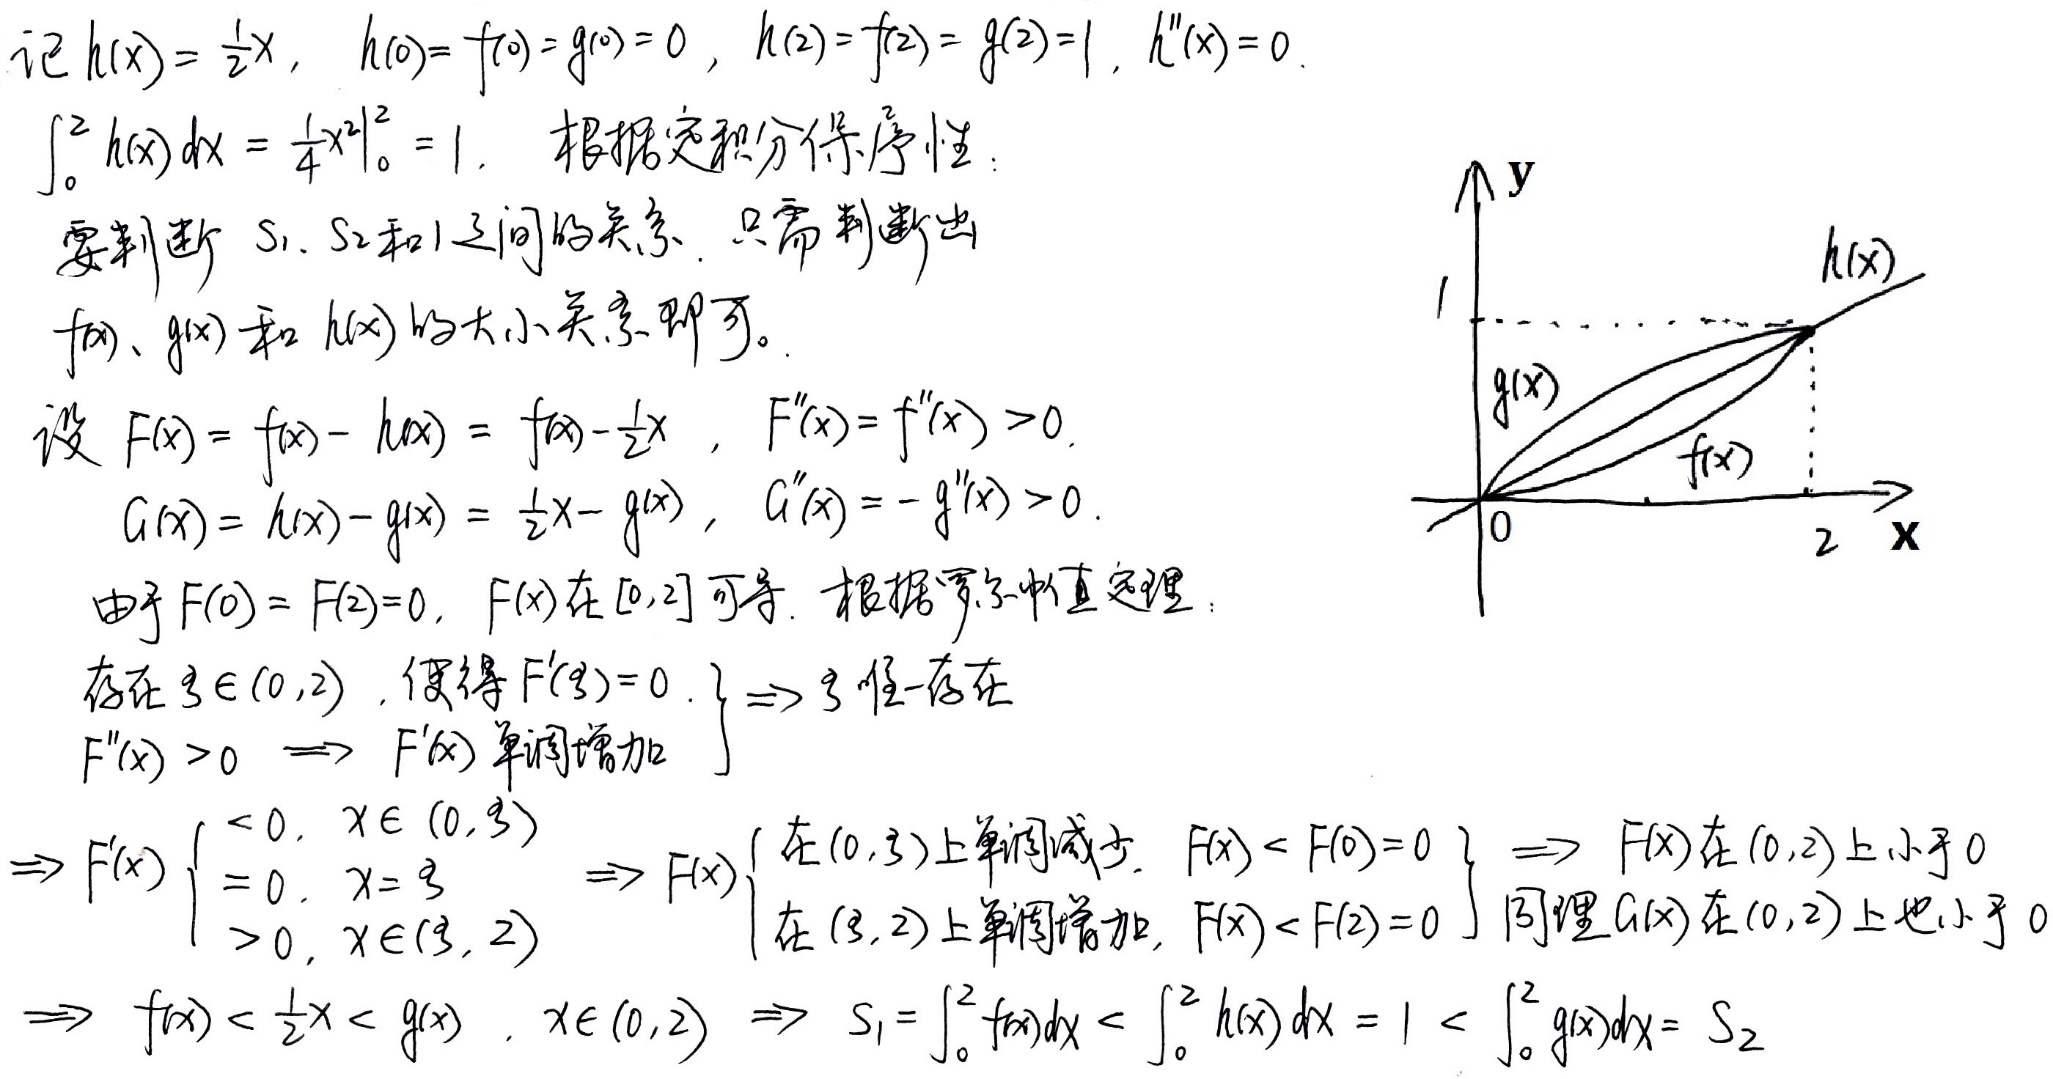 记 h(x) = ½x, h(0) = f(0) = g(0) = 0, h(2) = f(2) = g(2) = 1, h''(x) = 0.
∫₀² h(x) dx = ¼x²|₀² = 1. 根据定积分保序性:
要判断 S₁、S₂和1之间的关系. 只需判断出
f(x)、g(x) 和 h(x) 的大小关系即可。
设 F(x) = f(x) - h(x) = f(x) - ½x , F''(x) = f''(x) > 0.
G(x) = h(x) - g(x) = ½x - g(x) , G''(x) = - g''(x) > 0.
由于 F(0) = F(2) = 0, F(x) 在 [0,2] 可导. 根据罗尔中值定理:
存在 ξ ∈ (0,2) , 使得 F'(ξ) = 0 . } ⇒ ξ 唯一存在
F''(x) > 0 ⇒ F'(x) 单调增加
⇒ F'(x) { < 0, x ∈ (0,ξ)
= 0, x = ξ
> 0, x ∈ (ξ, 2)
⇒ F(x) { 在 (0,ξ) 上单调减少, F(x) < F(0) = 0
在 (ξ,2) 上单调增加, F(x) < F(2) = 0 }
⇒ F(x) 在 (0,2) 上小于 0
同理 G(x) 在 (0,2) 上也小于 0
⇒ f(x) < ½x < g(x) , x ∈ (0,2) ⇒ S₁ = ∫₀² f(x)dx < ∫₀² h(x) dx = 1 < ∫₀² g(x)dx = S₂
y
h(x)
1
g(x)
f(x)
0
2
x